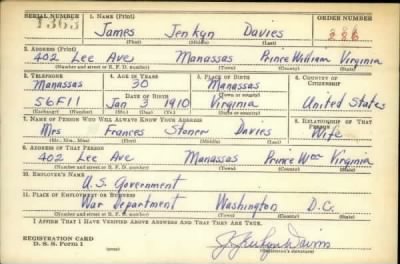 SERIAL NUMBER 1. NAME (Print) ORDER NUMBER
1363 James Jenkyn Davies
(First) (Middle) (Last)
2. ADDRESS (Print)
402 Lee Ave Manassas Prince William Virginia
(Number and street or R. F. D. number) (Town) (County) (State)
3. TELEPHONE 4. AGE IN YEARS 5. PLACE OF BIRTH 6. COUNTRY OF CITIZENSHIP
Manassas 30 Manassas
DATE OF BIRTH (Town or county)
56F11 Jan 3 1910 Virginia United States
(Exchange) (Number) (Mo.) (Day) (Yr.) (State or country)
7. NAME OF PERSON WHO WILL ALWAYS KNOW YOUR ADDRESS 8. RELATIONSHIP OF THAT PERSON
Mrs Frances Stoner Davies Wife
(Mr., Mrs., Miss) (First) (Middle) (Last)
9. ADDRESS OF THAT PERSON
402 Lee Ave Manassas Prince Wm Virginia
(Number and street or R. F. D. number) (Town) (County) (State)
10. EMPLOYER'S NAME
U.S. Government
11. PLACE OF EMPLOYMENT OR BUSINESS
War Department Washington D.C.
(Number and street or R. F. D. number) (Town) (County) (State)
I AFFIRM THAT I HAVE VERIFIED ABOVE ANSWERS AND THAT THEY ARE TRUE.
REGISTRATION CARD
D. S. S. Form 1 J. Jenkyn Davies